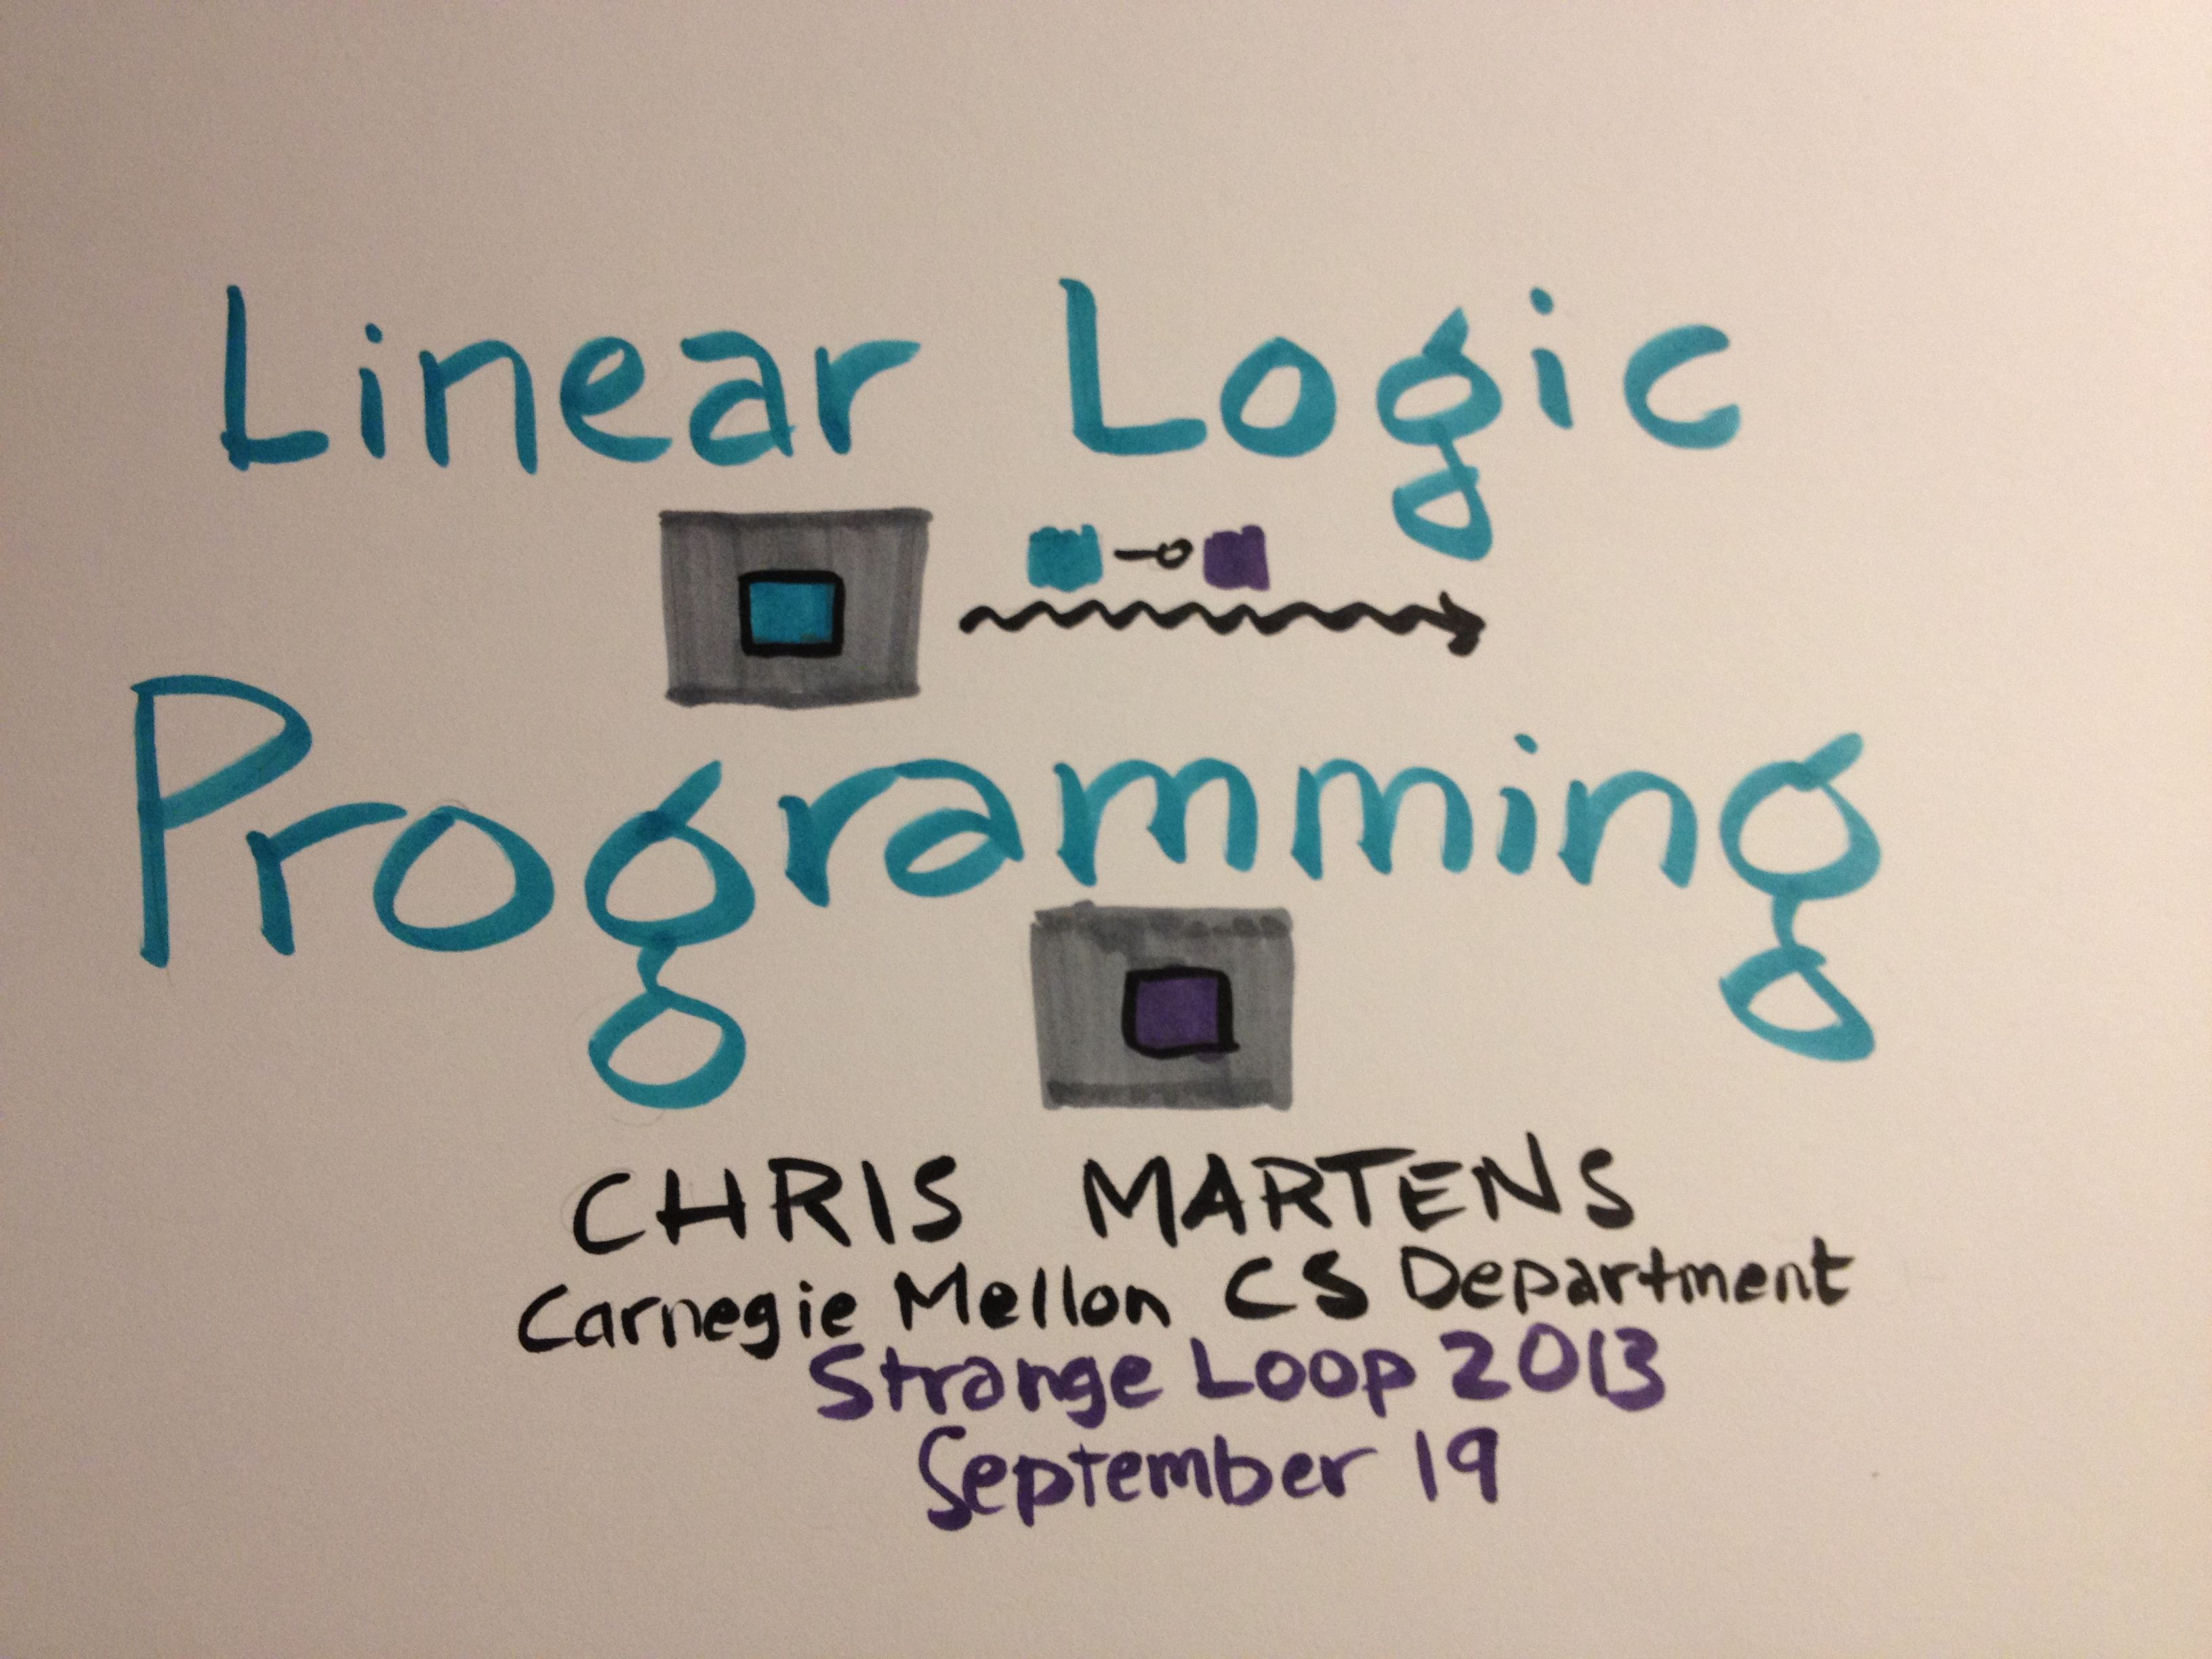 Linear Logic
Programming
CHRIS MARTENS
Carnegie Mellon CS Department
Strange Loop 2013
September 19